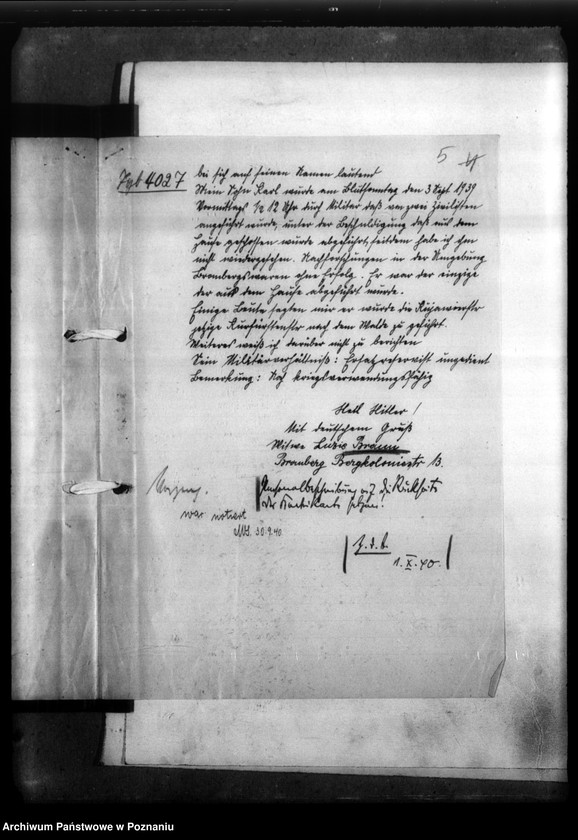 5
Tgb 4027
bei sich auf seinen Namen lautend
Mein Sohn Karl wurde am Blutsonntag den 3 Sept. 1939
Vormittags ½ 12 Uhr durch Militär daß von zwei Zivilisten
angeführt wurde, unter der Beschuldigung daß aus dem
Hause geschossen wurde abgeführt, seitdem habe ich ihn
nicht wiedergesehen. Nachforschungen in der Umgebung
Brombergs waren ohne Erfolg. Er war der einzige
der aus dem Hause abgeführt wurde.
Einige Leute sagten mir er wurde die Kujawierstr
jetzige Kurfürstenstr nach dem Walde zu geführt.
Weiteres weiß ich darüber nicht zu berichten
Sein Militärverhältniß: Ersatzreservist ungedient
Bemerkung: Noch kriegsverwendungsfähig
Heil Hitler!
Mit deutschem Gruß
Witwe Luzie Braun
Bromberg Bergkoloniestr 13.
Personalbeschreibung auf die Rückseite
der Karteikarte setzen.
war notiert
30.9.40
z.d.A.
1.X.40.
Archiwum Państwowe w Poznaniu